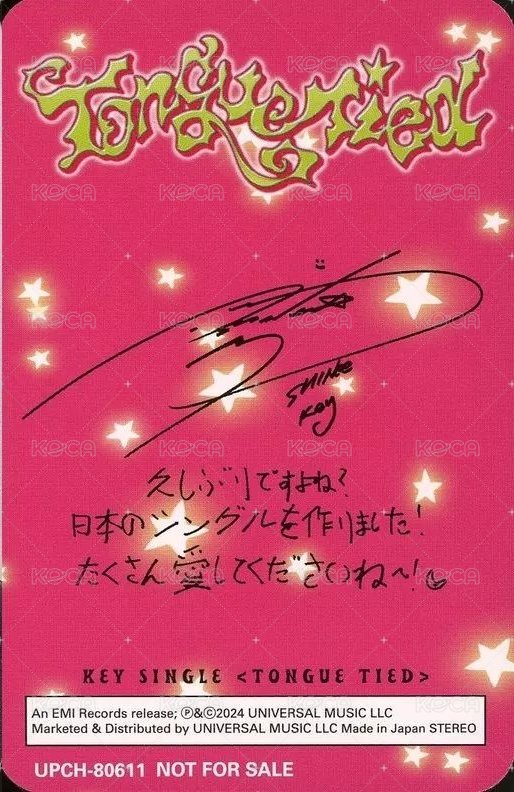 Tongue Tied
SHINee
Key
久しぶりですよね?
日本のシングルを作りました!
たくさん愛してくださいね〜!
KEY SINGLE <TONGUE TIED>
An EMI Records release; Ⓟ&©2024 UNIVERSAL MUSIC LLC
Marketed & Distributed by UNIVERSAL MUSIC LLC Made in Japan STEREO
UPCH-80611 NOT FOR SALE
KOCA